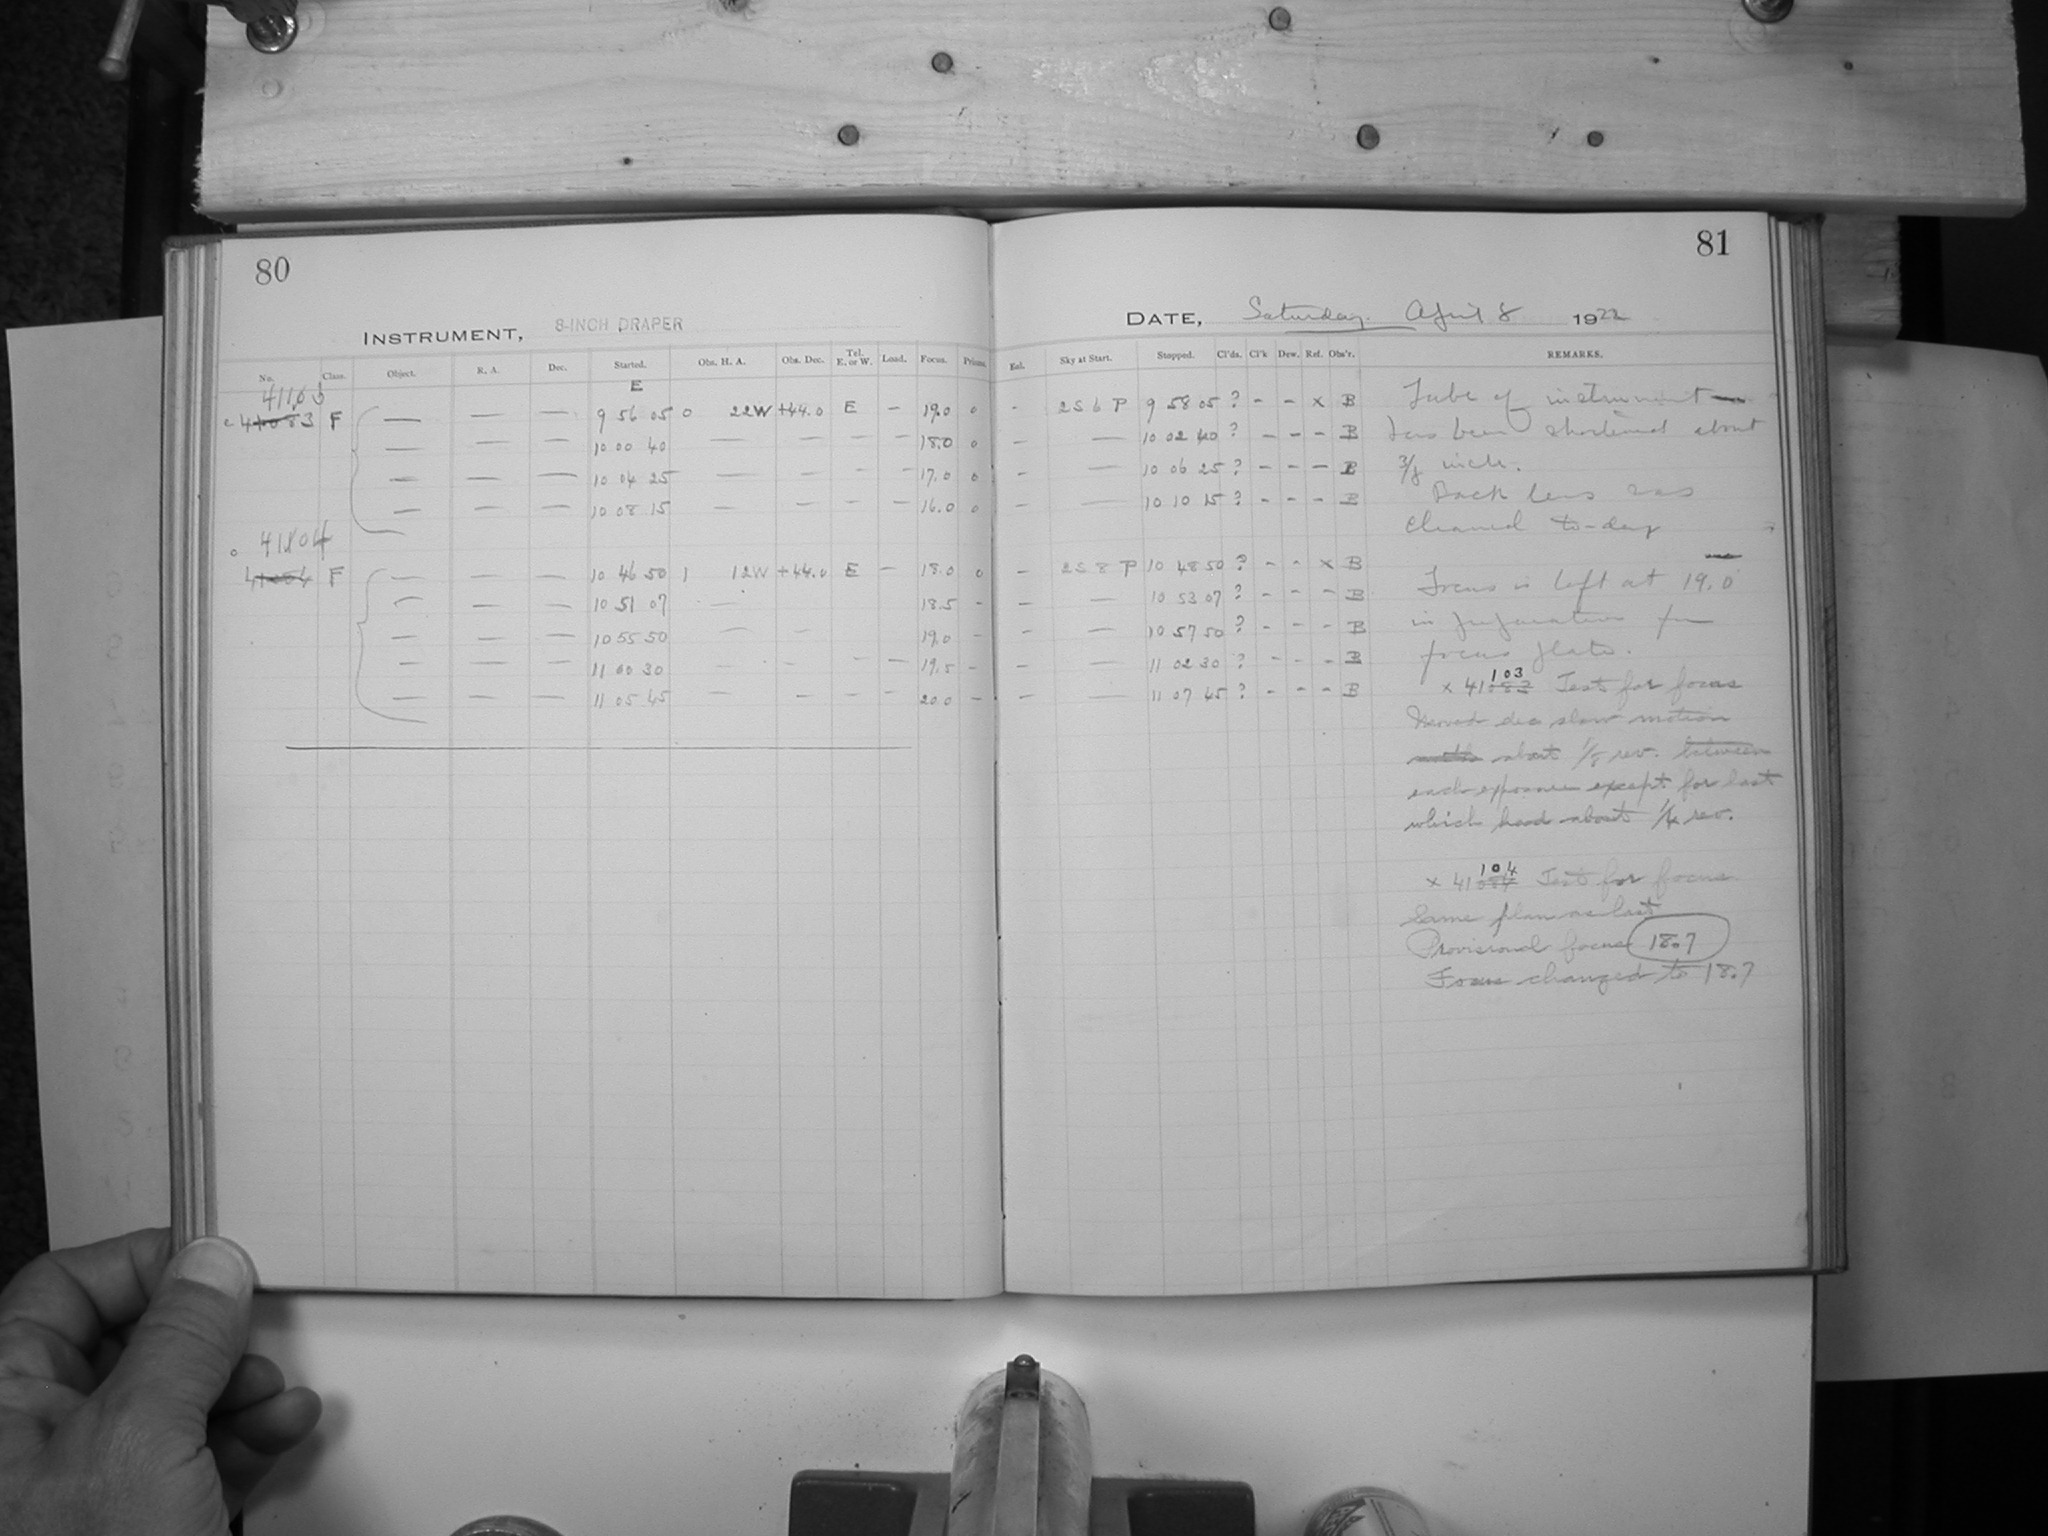 80
81
INSTRUMENT, 8-INCH DRAPER
DATE, Saturday April 8 1922
No. Class. Object. R. A. Dec. Started. Obs. H. A. Obs. Dec. Tel. E. or W. Load. Focus. Prisms. Enl. Sky at Start. Stopped. Cl'ds. Cl'k Dew. Ref. Obs'r. REMARKS.
E
41103
c 41083 F — — — 9 56 05 0 22W +44.0 E — 19.0 0 - 2 S 6 P 9 58 05 ? - - x B
— — — 10 00 40 — — — — 18.0 0 - — 10 02 40 ? - - - B
— — — 10 04 25 — — — — 17.0 0 - — 10 06 25 ? - - - B
— — — 10 08 15 — — — — 16.0 0 - — 10 10 15 ? - - - B
c 41104
41084 F — — — 10 46 50 1 12W +44.0 E — 18.0 0 - 2 S 8 P 10 48 50 ? - - x B
— — — 10 51 07 — 18.5 - - — 10 53 07 ? - - - B
— — — 10 55 50 — — 19.0 - - — 10 57 50 ? - - - B
— — — 11 00 30 — — — — 19.5 - - — 11 02 30 ? - - - B
— — — 11 05 45 — — — — 20.0 - - — 11 07 45 ? - - - B
Tube of instrument
has been shortened about
3/8 inch.
Back lens was
cleaned to-day
Focus is left at 19.0
in preparation for
focus plate.
103
x 41083 Test for focus
Moved dec slow motion
about 1/8 rev. between
each exposure except for last
which had about 1/4 rev.
104
x 41084 Test for focus
Same plan as last
Provisional focus 18.7
Focus changed to 18.7